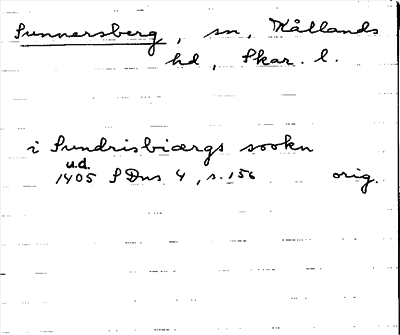 Sunnersberg, sn, Kållands
hd, Skar. l.
i Sundrisbiærgs sookn
u.d.
1405 SDns 4, s. 156 orig.